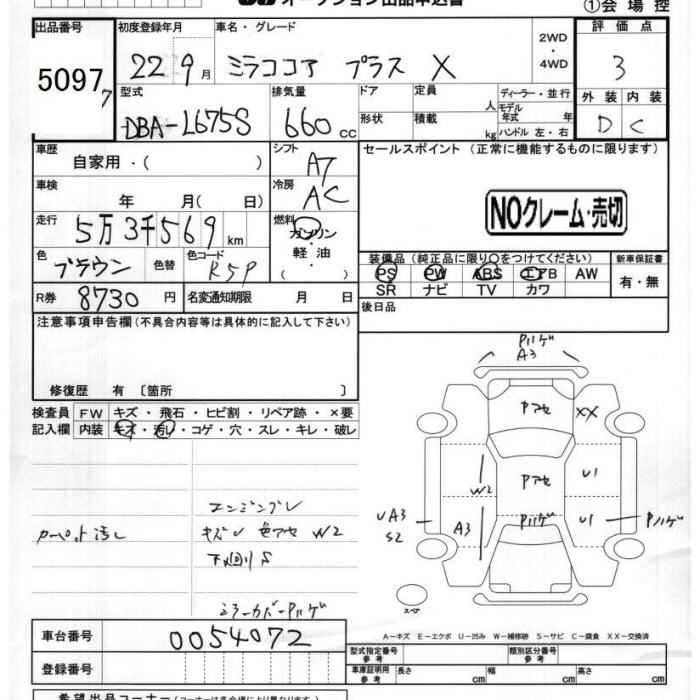 オークション出品申込書
①会場控
出品番号 初度登録年月 車名・グレード 2WD・4WD 評価点
50977 22 9月 ミラココア プラス X 3
型式 排気量 ドア 定員 人 ディーラー・並行 外装 内装
DBA-L675S 660cc 形状 積載 kg モデル年式 年 ハンドル 左・右 D C
車歴 自家用・( ) シフト A7 セールスポイント (正常に機能するものに限ります)
車検 年 月( 日) 冷房 AC
NOクレーム・売切
走行 5万3千569km 燃料 ガソリン・軽油・( )
色 ブラウン 色替 色コード R59 装備品(純正品に限り○をつけてください) 新車保証書
PS PW ABS エアB AW 有・無
SR ナビ TV カワ
R券 8730円 名変通知期限 月 日 後日品
注意事項申告欄(不具合内容等は具体的に記入して下さい)
修復歴 有 〔箇所 〕
検査員 FW キズ・飛石・ヒビ割・リペア跡・×要
記入欄 内装 キズ・汚レ・コゲ・穴・スレ・キレ・破レ
カーペット汚レ
キズU 色アセ W2
下回りS
ミラーカバーPハゲ
Pハゲ
A3
Pアセ
XX
W2
Pアセ
U1
UA3
S2
A3
Pハゲ
U1
Pハゲ
スペア
A－キズ E－エクボ U－凹み W－補修跡 S－サビ C－腐食 XX－交換済
車台番号 0054072
型式指定番号 参考 類別区分番号 参考
登録番号 車庫証明用 参考 長さ cm 幅 cm 高さ cm
希望出品コーナー